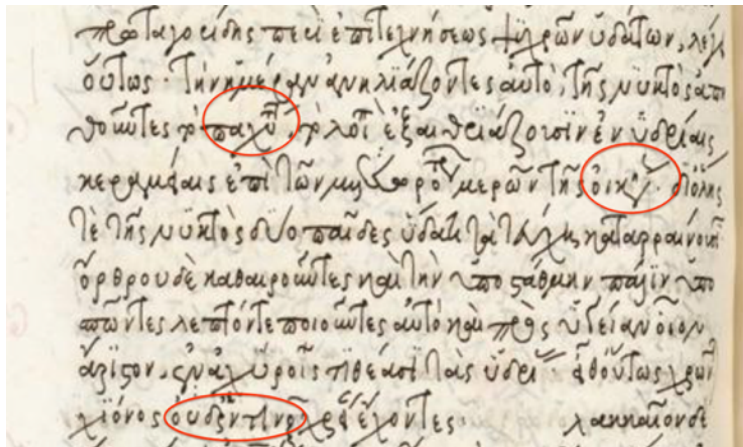 πρωταγορίδης περὶ ἐπιτεχνήσεως ψυχρῶν ὑδάτων, λέγ
οὕτως· τὴν ἡμέραν ἀνηλιάζοντες αὐτὸ, τῆς νυκτὸς ἀπη
θοῦντες τὸ παχὺ, τὸ λοιπὸ ἐξαιθριάζουσιν ἐν ὑδρίαις
κεραμέαις ἐπὶ τῶν μερῶν τῆς διόλης
τὲ τῆς νυκτὸς δύο παῖδες ὕδατι τὰ τεύχη καταρραίνουσι
ὄρθρου δὲ καθαιροῦντες καὶ τὴν ὑποστάθμην πάλιν ὑπο
σπῶντες λεπτόν τε ποιοῦντες αὐτὸ καὶ πρὸς ὑγείαν οἷον
ἄριστον, ἐν ἀχύροις τιθέασι τὰς ὑδρί εἶθ οὕτως χρῶν
χιόνος ἔχοντες λακκαῖον δὲ